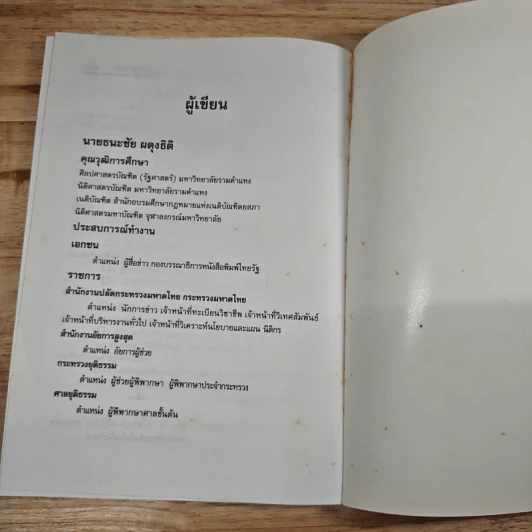 ผู้เขียน
นายธนะชัย ผดุงธิติ
คุณวุฒิการศึกษา
ศิลปศาสตรบัณฑิต (รัฐศาสตร์) มหาวิทยาลัยรามคำแหง
นิติศาสตรบัณฑิต มหาวิทยาลัยรามคำแหง
เนติบัณฑิต สำนักอบรมศึกษากฎหมายแห่งเนติบัณฑิตยสภา
นิติศาสตรมหาบัณฑิต จุฬาลงกรณ์มหาวิทยาลัย
ประสบการณ์ทำงาน
เอกชน
ตำแหน่ง ผู้สื่อข่าว กองบรรณาธิการหนังสือพิมพ์ไทยรัฐ
ราชการ
สำนักงานปลัดกระทรวงมหาดไทย กระทรวงมหาดไทย
ตำแหน่ง นักการข่าว เจ้าหน้าที่ทะเบียนวิชาชีพ เจ้าหน้าที่วิเทศสัมพันธ์
เจ้าหน้าที่บริหารงานทั่วไป เจ้าหน้าที่วิเคราะห์นโยบายและแผน นิติกร
สำนักงานอัยการสูงสุด
ตำแหน่ง อัยการผู้ช่วย
กระทรวงยุติธรรม
ตำแหน่ง ผู้ช่วยผู้พิพากษา ผู้พิพากษาประจำกระทรวง
ศาลยุติธรรม
ตำแหน่ง ผู้พิพากษาศาลชั้นต้น